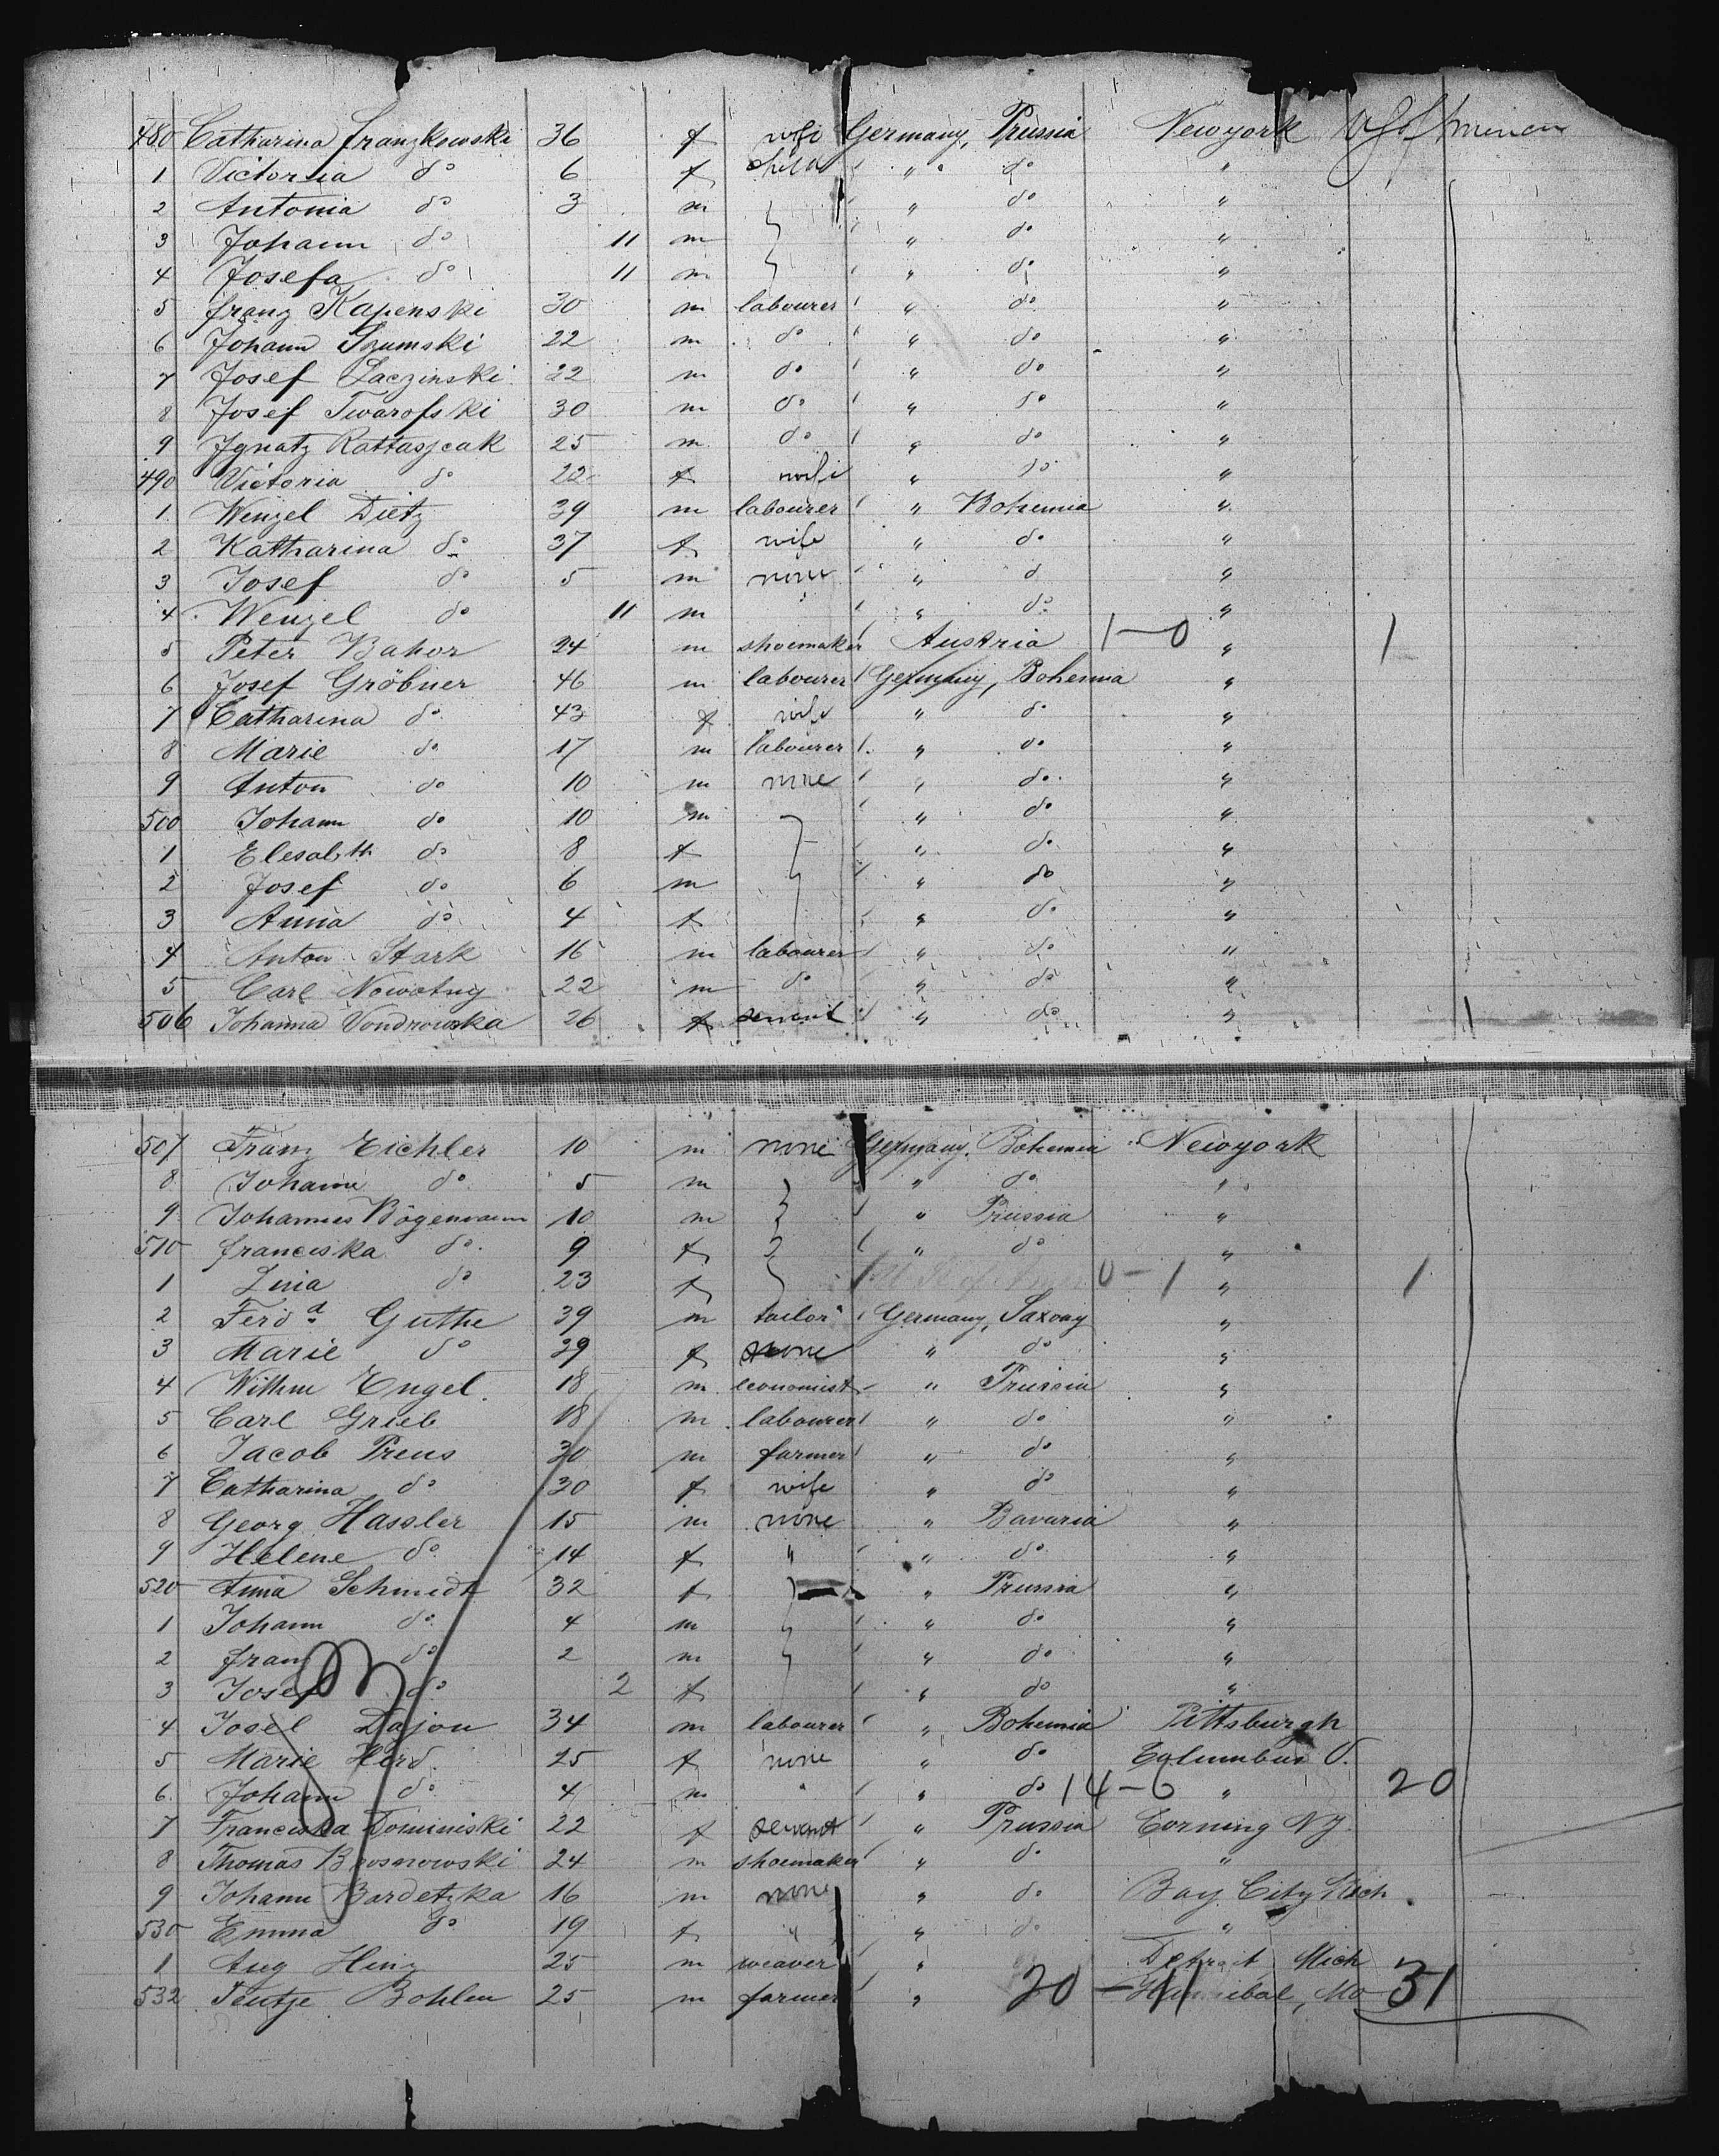 480 Catharina Franzkowski 36 f wife Germany, Prussia Newyork
1 Victoria do 6 f child " do "
2 Antonia do 3 m " do "
3 Johann do 11 m " do "
4 Josefa do 11 m " do "
5 Franz Kapenski 30 m labourer " do "
6 Johann Szumski 22 m do " do "
7 Josef Laczinski 22 m do " do "
8 Josef Twarofski 30 m do " do "
9 Ignatz Rattasjcak 25 m do " do "
490 Victoria do 22 f wife " do "
1 Wenzel Dietz 39 m labourer " Bohemia "
2 Katharina do 37 f wife " do "
3 Josef do 5 m none " do "
4 Wenzel do 11 m " do "
5 Peter Bahor 24 m shoemaker Austria 1-0 " 1
6 Josef Gröbner 46 m labourer Germany, Bohemia "
7 Catharina do 43 f wife " do "
8 Marie do 17 m labourer " do "
9 Anton do 10 m none " do "
500 Johann do 10 m " do "
1 Elesabeth do 8 f " do "
2 Josef do 6 m " do "
3 Anna do 4 f " do "
4 Anton Stark 16 m labourer " do "
5 Carl Nowotny 22 m do " do "
506 Johanna Vondrowska 26 f servent " do "
507 Franz Eichler 10 m none Germany, Bohemia Newyork
8 Johann do 5 m " do "
9 Johannes Bögemann 10 m " Prussia "
510 Franciska do 9 f " do "
1 Lina do 23 f 0-1 " 1
2 Ferdd Guthe 39 m tailor Germany, Saxony "
3 Marie do 39 f none " do "
4 Wilhm Engel 18 m economist " Prussia "
5 Carl Grieb 18 m labourer " do "
6 Jacob Preus 30 m farmer " do "
7 Catharina do 30 f wife " do "
8 Georg Hassler 15 m none " Bavaria "
9 Helene do 14 f " " do "
520 Anna Schmidt 32 f " Prussia "
1 Johann do 4 m " do "
2 Franz do 2 m " do "
3 Josef do 2 f " do "
4 Josef Dajou 34 m labourer " Bohemia Pittsburgh
5 Marie Herd 25 f none " do Columbus O.
6 Johann do 4 m " " do 14-6 " 20
7 Franciska Dominiski 22 f servant " Prussia Corning NY.
8 Thomas Brosnowski 24 m shoemaker " do "
9 Johann Bardetzka 16 m none " do Bay City Mich
530 Emma do 19 f " " do "
1 Aug Hinz 25 m weaver " Detroit Mich
532 Tentje Bohlen 25 m farmer " 20-11 Hannibal, Mo 31